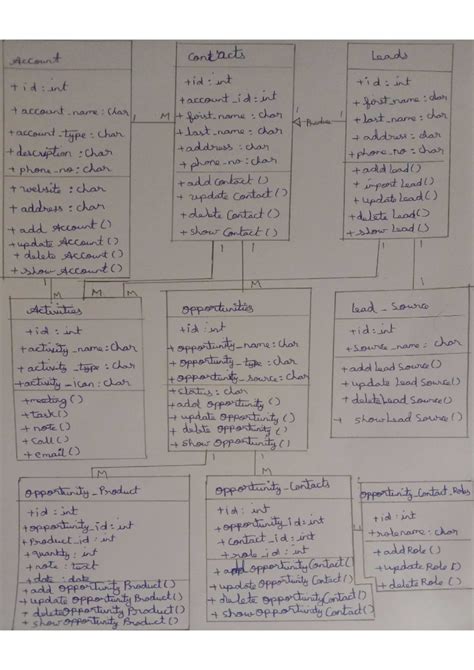 Account
+ id : int
+ account_name : char
+ account_type : char
+ description : char
+ phone_no : char
+ website : char
+ address : char
+ add Account ( )
+ update Account ( )
+ delete Account ( )
+ show Account ( )
1
M
Contacts
+ id : int
+ account_id : int
+ first_name : char
+ last_name : char
+ address : char
+ phone_no : char
+ add Contact ( )
+ update Contact ( )
+ delete Contact ( )
+ show Contact ( )
1
1
Leads
+ id : int
+ first_name : char
+ last_name : char
+ address : char
+ phone_no : char
+ add Lead ( )
+ import Lead ( )
+ update Lead ( )
+ delete Lead ( )
+ show Lead ( )
1
1
1
1
1
1
M
M
M
M
1
Activities
+ id : int
+ activity_name : char
+ activity_type : char
+ activity_icon : char
+ meeting ( )
+ task ( )
+ note ( )
+ call ( )
+ email ( )
Opportunities
+ id : int
+ opportunity_name : char
+ opportunity_type : char
+ opportunity_source : char
+ status : char
+ add Opportunity ( )
+ update Opportunity ( )
+ delete Opportunity ( )
+ show Opportunity ( )
Lead_Source
+ id : int
+ source_name : char
+ add Lead Source ( )
+ update Lead Source ( )
+ delete Lead Source ( )
+ show Lead Source ( )
1
1
M
M
Opportunity_Product
+ id : int
+ opportunity_id : int
+ Product_id : int
+ quantity : int
+ note : text
+ date : date
+ add Opportunity Product ( )
+ update Opportunity Product ( )
+ delete Opportunity Product ( )
+ show Opportunity Product ( )
Opportunity_Contacts
+ id : int
+ opportunity_id : int
+ contact_id : int
+ role_id : int
+ add Opportunity Contact ( )
+ update Opportunity Contact ( )
+ delete Opportunity Contact ( )
+ show Opportunity Contact ( )
Opportunity_Contact_Roles
+ id : int
+ rolename : char
+ add Role ( )
+ update Role ( )
+ delete Role ( )